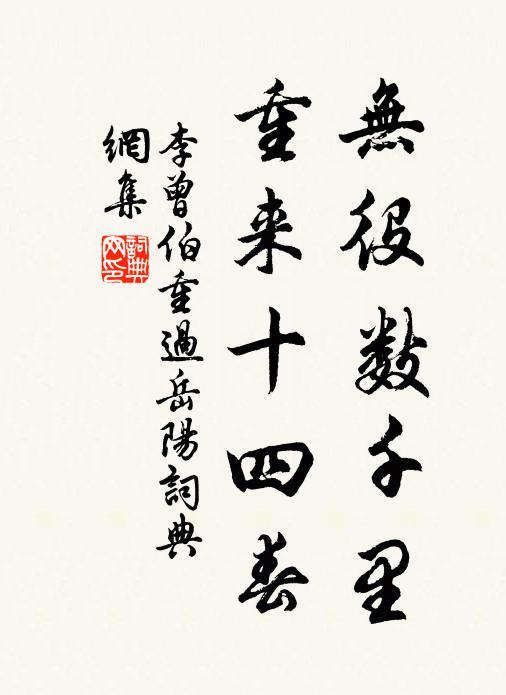 無役数千里
重来十四春
李曾伯重過岳陽詞典
網集
詞典
网印